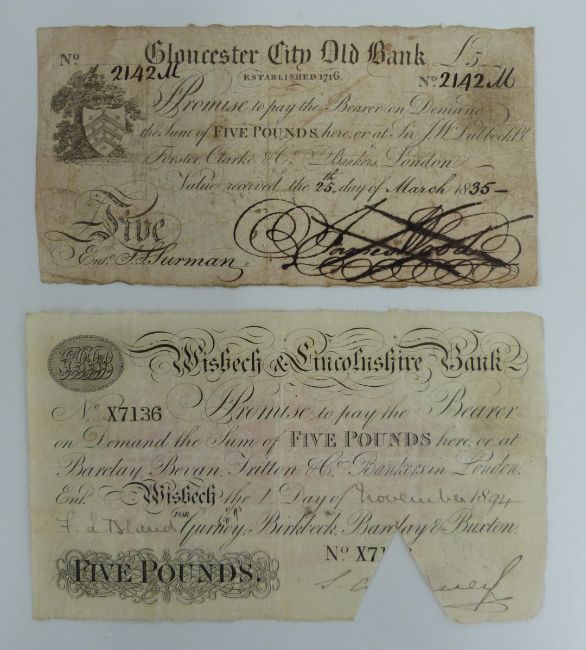 Gloucester City Old Bank £5
ESTABLISHED 1716.
No 2142M No 2142M
I Promise to pay the Bearer on Demand
the Sum of FIVE POUNDS, here, or at Sir J.W. Lubbock Bt
Forster, Clarke & Co Bankers, London
Value received the 25th day of March 1835-
Five
Entd J.S. Surman James Wood
Wisbech & Lincolnshire Bank
No X7136 I Promise to pay the Bearer
on Demand the Sum of FIVE POUNDS here, or at
Barclay, Bevan, Tritton & Co Bankers in London.
Entd Wisbech the 1 Day of November 1894
FOR
Gurney, Birkbeck, Barclay & Buxton.
No X7
FIVE POUNDS.